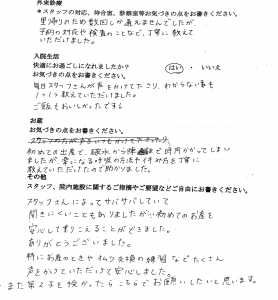 外来診療
*スタッフの対応、待合室、診察室等お気づきの点をお書きください。
里帰りのため数回しか通えませんでしたが、
予約の対応や検査のことなど、丁寧に教えて
いただけました。
入院生活
快適にお過ごしになれましたか? はい・いいえ
お気づきの点をお書きください。
毎日スタッフさんが声をかけて下さり、わからない事も
1つ1つ教えていただけました。
ご飯もおいしかったです
お産
お気づきの点をお書きください。
初めての出産で、破水から陣痛まで時間がかってしまい
ましたが、楽になる呼吸の方法や押し方を丁寧に
教えていただけたので助かりました。
その他
スタッフ、院内施設に関するご指摘やご要望などご自由にお書きください。
スタッフさんによってサバサバしていて
聞きにくいこともありましたが、初めてのお産を
安心してすることができました。
ありがとうございました。
特にお産のときや、ムツ交換の練習などたくさん
声をかけていただけて安心しました。
また第2子を授かったらこちらでお願いしたいと思います。